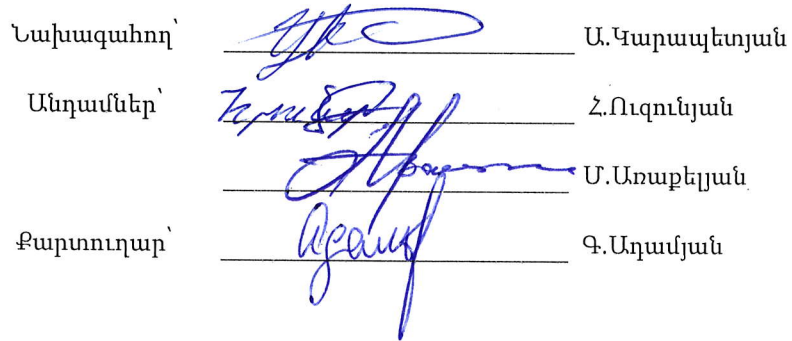 Նախագահող՝ Ա.Կարապետյան
Անդամներ՝ Հ.Ուզունյան
Մ.Առաքելյան
Քարտուղար՝ Գ.Ադամյան